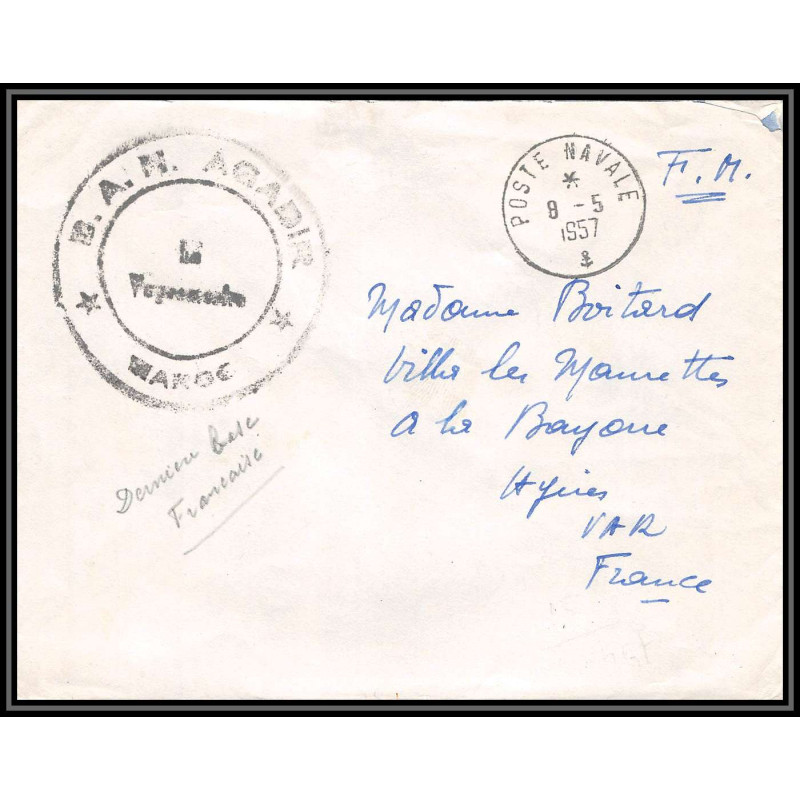 B.A.N. AGADIR
MAROC
POSTE NAVALE
8 - 5
1957
F.M.
Madame Boitard
Villa les Maurettes
a la Bayorre
Hyères
VAR
France
Derniere Base
Francaise